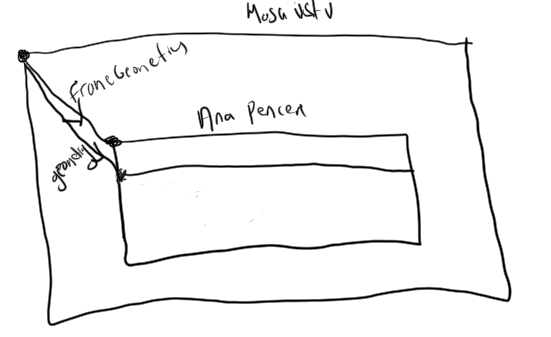 Masa üstü
FrameGeometry
Ana Pencere
geometry